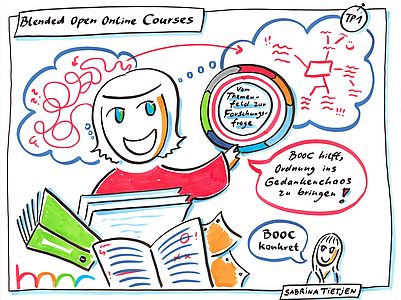 Blended Open Online Courses
TP1
Vom
Themen-
feld zur
Forschungs-
frage
BOOC hilft,
Ordnung ins
Gedankenchaos
zu bringen!
BOOC
konkret
SABRINA TIETJEN